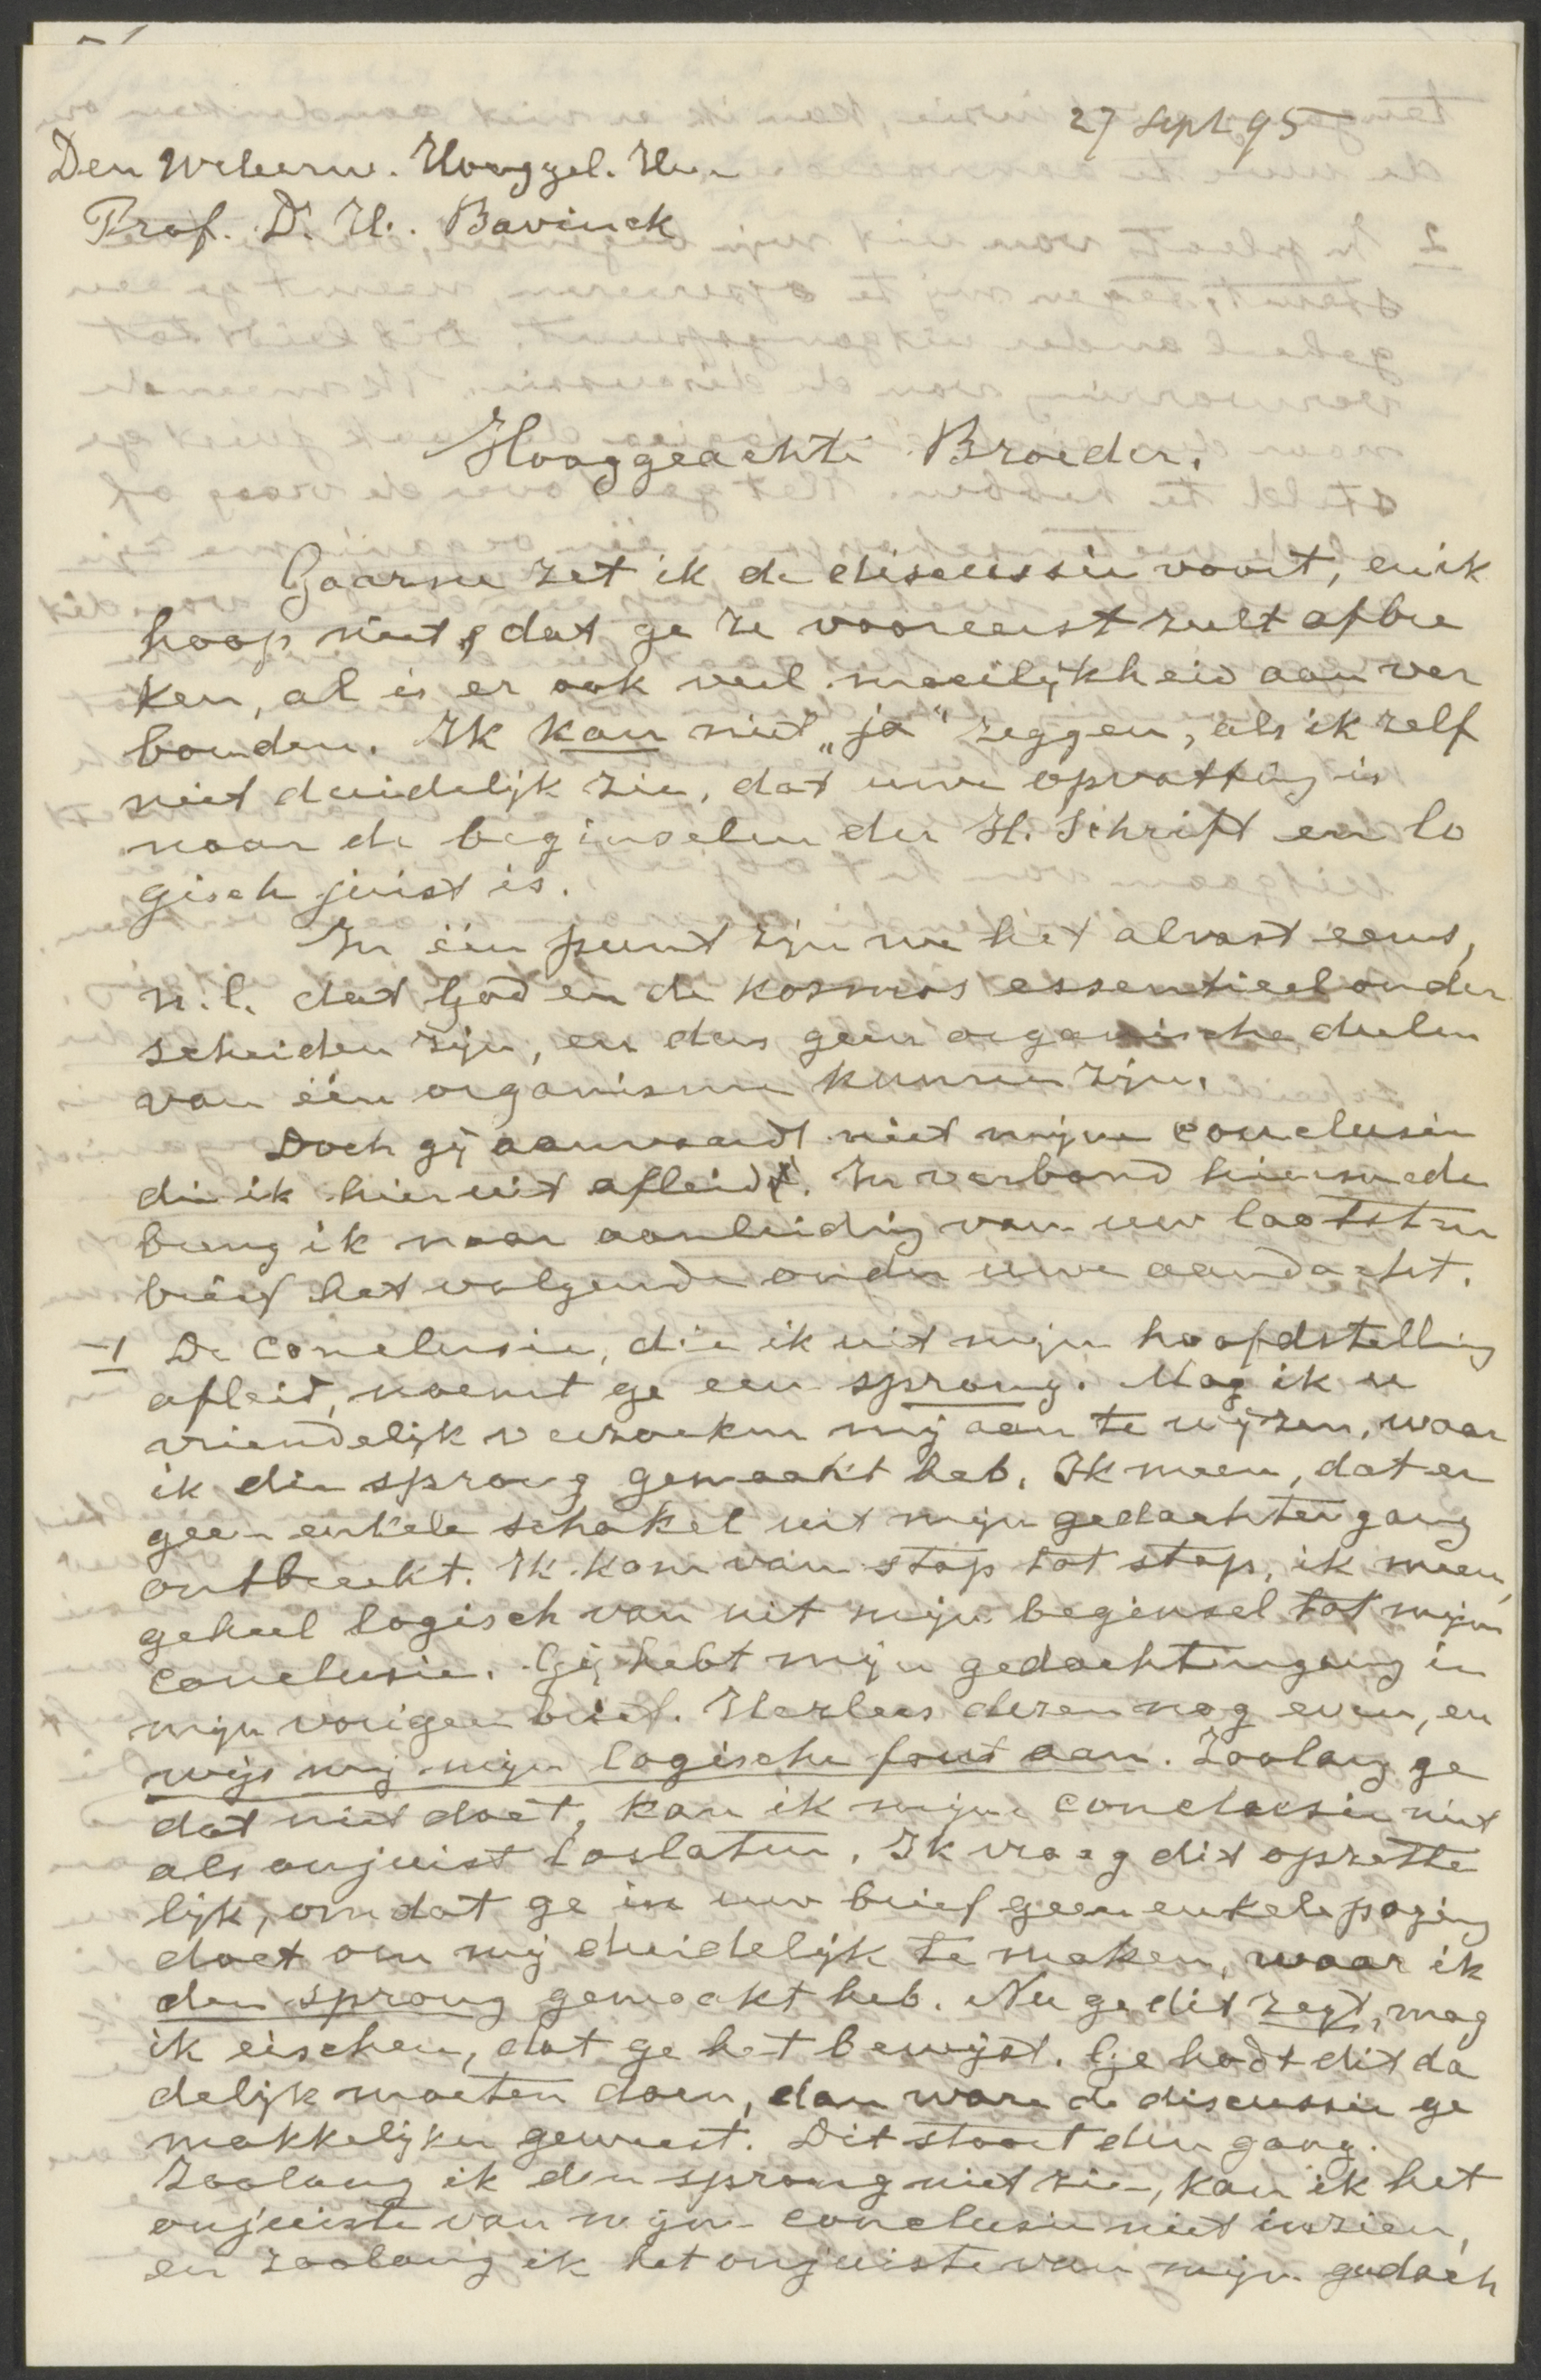 27 Sept 95
Den WelEerw. Hooggel. Heer
Prof. Dr. H. Bavinck
Hooggeachte Broeder,
Gaarne zet ik de discussie voort, en ik
hoop niet, dat ge ze vooreerst zult afbre
ken, al is er ook veel moeilijkheid aan ver
bonden. Ik kan niet „ja" zeggen, als ik zelf
niet duidelijk zie, dat uwe opvatting is
naar de beginselen der H. Schrift en lo
gisch juist is.
In één punt zijn we het alvast eens,
n.l. dat God en de kosmos essentieel onder
scheiden zijn, en dus geen organische deelen
van één organisme kunnen zijn.
Doch gij aanvaardt niet mijne conclusie
die ik hieruit afleid. In verband hiermede
breng ik naar aanleiding van uw laatsten
brief het volgende onder uwe aandacht.
1 De conclusie, die ik uit mijn hoofdstelling
afleid, noemt ge een sprong. Mag ik u
vriendelijk verzoeken mij aan te wijzen, waar
ik die sprong gemaakt heb. Ik meen, dat er
geen enkele schakel uit mijn gedachtengang
ontbreekt. Ik kom van stap tot stap, ik meen,
geheel logisch van uit mijn beginsel tot mijn
conclusie. Gij hebt mijn gedachtengang in
mijn vorigen brief. Herlees dezen nog even, en
wijs mij mijn logische fout aan. Zoolang ge
dat niet doet, kan ik mijne conclusie niet
als onjuist loslaten. Ik vraag dit opzette
lijk, omdat ge in uw brief geen enkele poging
doet om mij duidelijk te maken, waar ik
den sprong gemaakt heb. Nu ge dit zegt, mag
ik eischen, dat ge het bewijst. Ge hadt dit da
delijk moeten doen, dan ware de discussie ge
makkelijker geweest. Dit stoort den gang.
Zoolang ik den sprong niet zie, kan ik het
onjuiste van mijne conclusie niet inzien,
en zoolang ik het onjuiste van mijn gedach